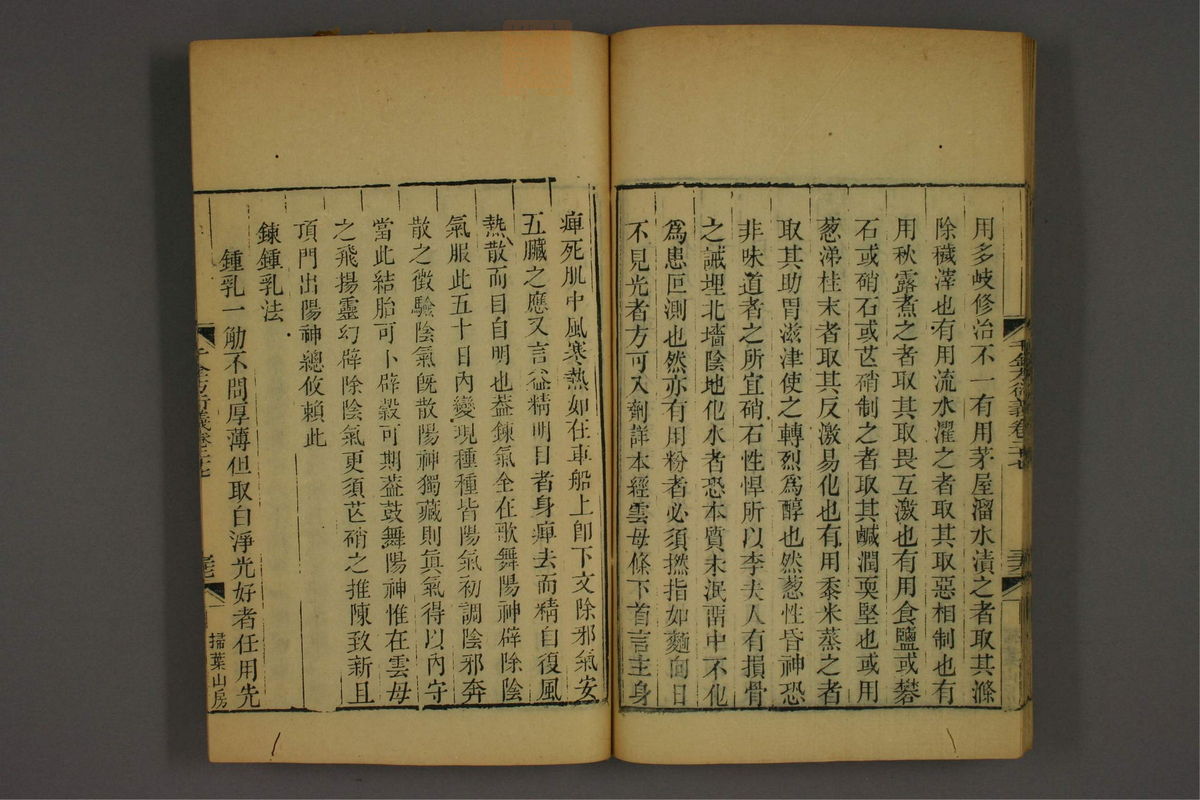 用多岐修治不一有用茅屋溜水漬之者取其滌
除穢滓也有用流水濯之者取其取惡相制也有
用秋露煮之者取其取畏互激也有用食鹽或礬
石或硝石或芒硝制之者取其鹹潤耎堅也或用
葱涕桂末者取其反激易化也有用黍米蒸之者
取其助胃滋津使之轉烈爲醇也然葱性昏神恐
非味道者之所宜硝石性悍所以李夫人有損骨
之誡埋北墻陰地化水者恐本質未泯荋中不化
爲患叵測也然亦有用粉者必須撚指如麵向日
不見光者方可入劑詳本經雲母條下首言主身
千金方衍義卷二十七
痺死肌中風寒熱如在車船上卽下文除邪氣安
五臟之應又言益精明目者身痺去而精自復風
熱散而目自明也葢鍊氣全在歌舞陽神辟除陰
氣服此五十日內變現種種皆陽氣初調陰邪奔
散之徵驗陰氣旣散陽神獨藏則眞氣得以內守
當此結胎可卜辟穀可期葢鼓舞陽神惟在雲母
之飛揚靈幻辟除陰氣更須芒硝之推陳致新且
頂門出陽神總攸賴此
鍊鍾乳法
鍾乳一觔不問厚薄但取白淨光好者任用先
千金方衍義卷二十七
掃葉山房